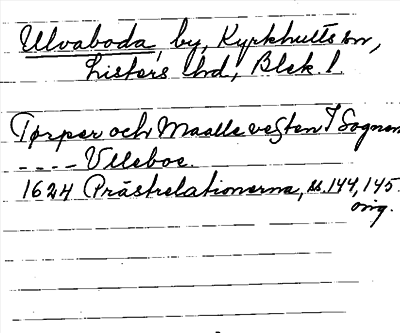 Ulvaboda, by, Kyrkhults sn,
Listers hd, Blek. l.
Tørper och Maalleveßten I Sognen
---- Ulleboe.
1624 Prästrelationerna, s. 144, 145.
orig.